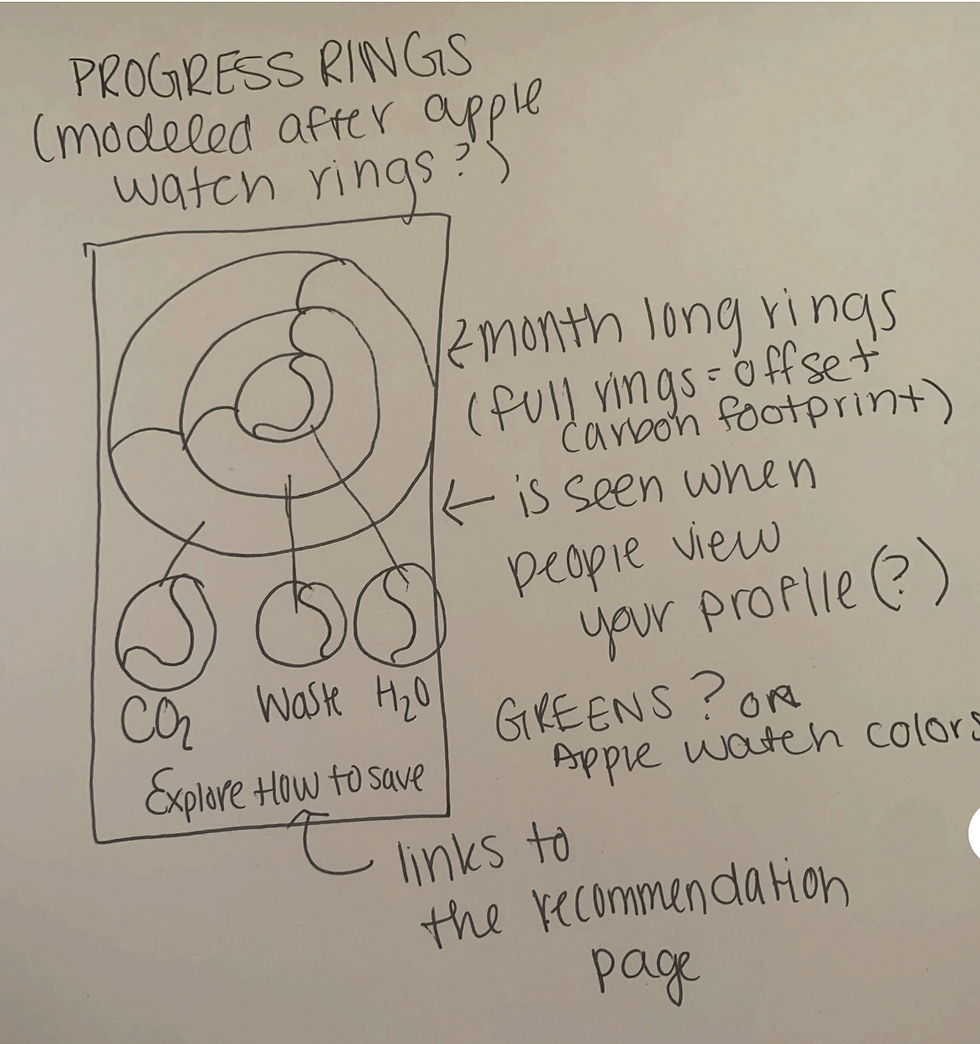 PROGRESS RINGS
(modeled after apple
watch rings?)
month long rings
(full rings = offset
carbon footprint)
is seen when
people view
your profile (?)
CO2
Waste
H2O
GREENS? OR
Apple watch colors
Explore How to save
links to
the recommendation
page